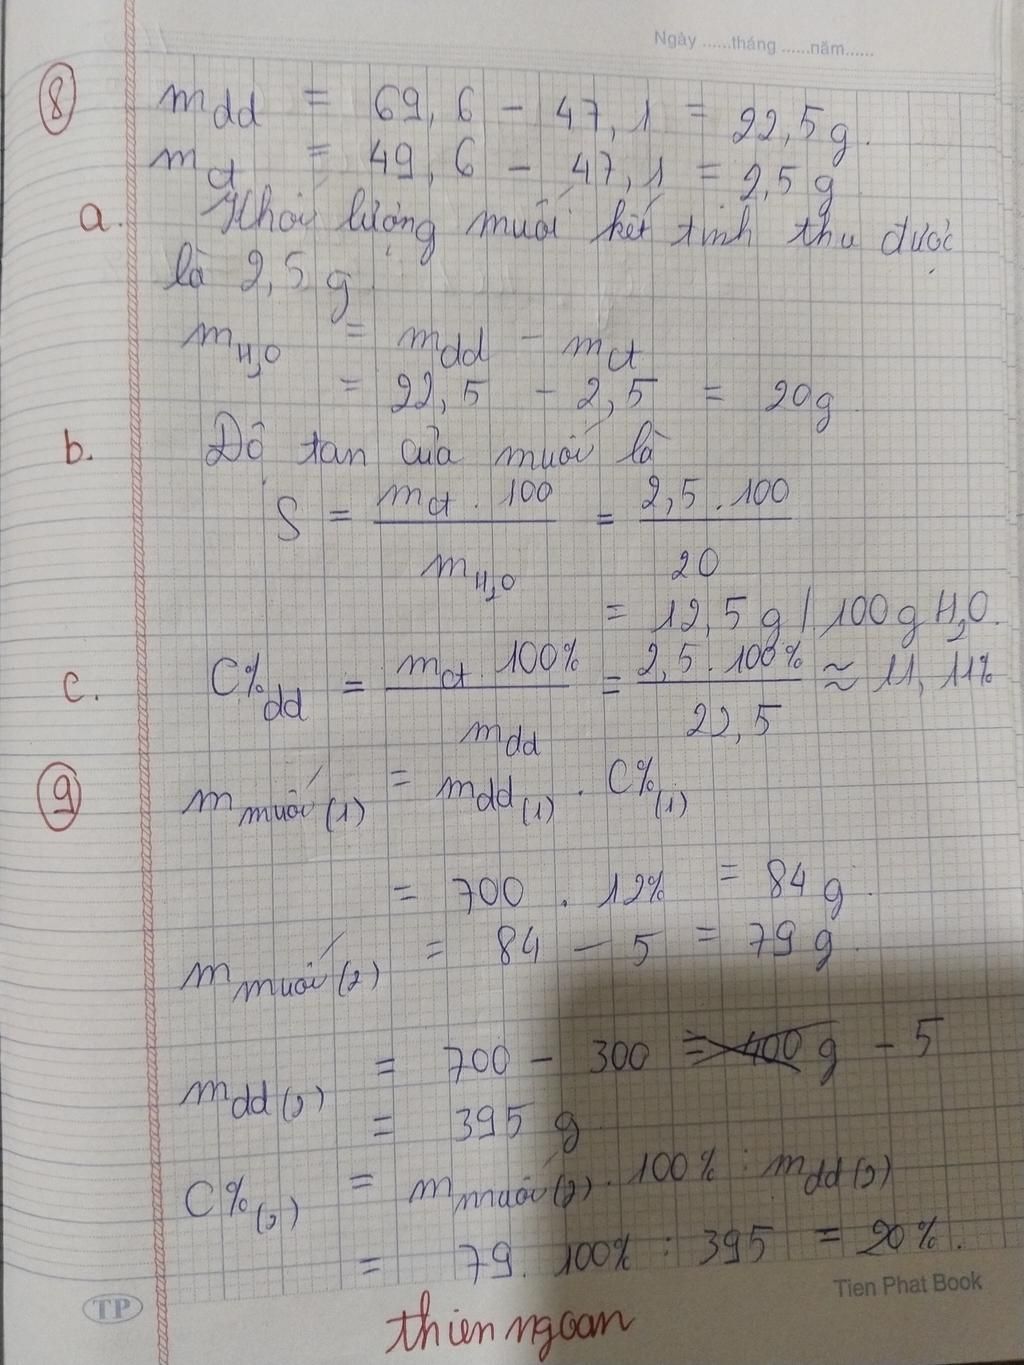 Ngày ......tháng ......năm......
8 m dd = 69,6 - 47,1 = 22,5 g.
m ct = 49,6 - 47,1 = 2,5 g
a. Khối lượng muối kết tinh thu được
là 2,5 g
m H2O = m dd - m ct
= 22,5 - 2,5 = 20g
b. Độ tan của muối là
S = m ct . 100 / m H2O = 2,5 . 100 / 20
= 12,5 g / 100 g H2O.
c. C% dd = m ct . 100% / m dd = 2,5 . 100% / 22,5 ≈ 11,11%
9 m muối (1) = m dd (1) . C% (1)
= 700 . 12% = 84 g.
m muối (2) = 84 - 5 = 79 g.
m dd (2) = 700 - 300 = 400 g - 5
= 395 g
C% (2) = m muối (2) . 100% : m dd (2)
= 79 . 100% : 395 = 20%.
Tien Phat Book
TP
thienngoan